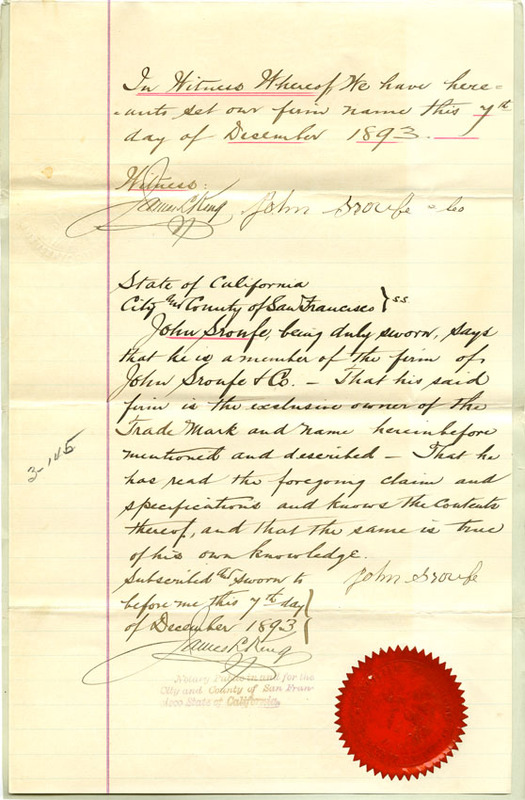 In Witness Whereof We have here=
=unto set our firm name this 7th
day of December 1893.
Witness:
James L King John Sroufe & Co
State of California
City and County of San Francisco } ss
John Sroufe, being duly sworn, says
that he is a member of the firm of
John Sroufe & Co. – That his said
firm is the exclusive owner of the
Trade Mark and name hereinbefore
mentioned and described – That he
has read the foregoing claim and
specifications and knows the Contents
thereof, and that the same is true
of his own knowledge.
Subscribed and Sworn to John Sroufe
before me this 7th day
of December 1893
James L King
Notary Public in and for the
City and County of San Fran-
cisco State of California.
3-145